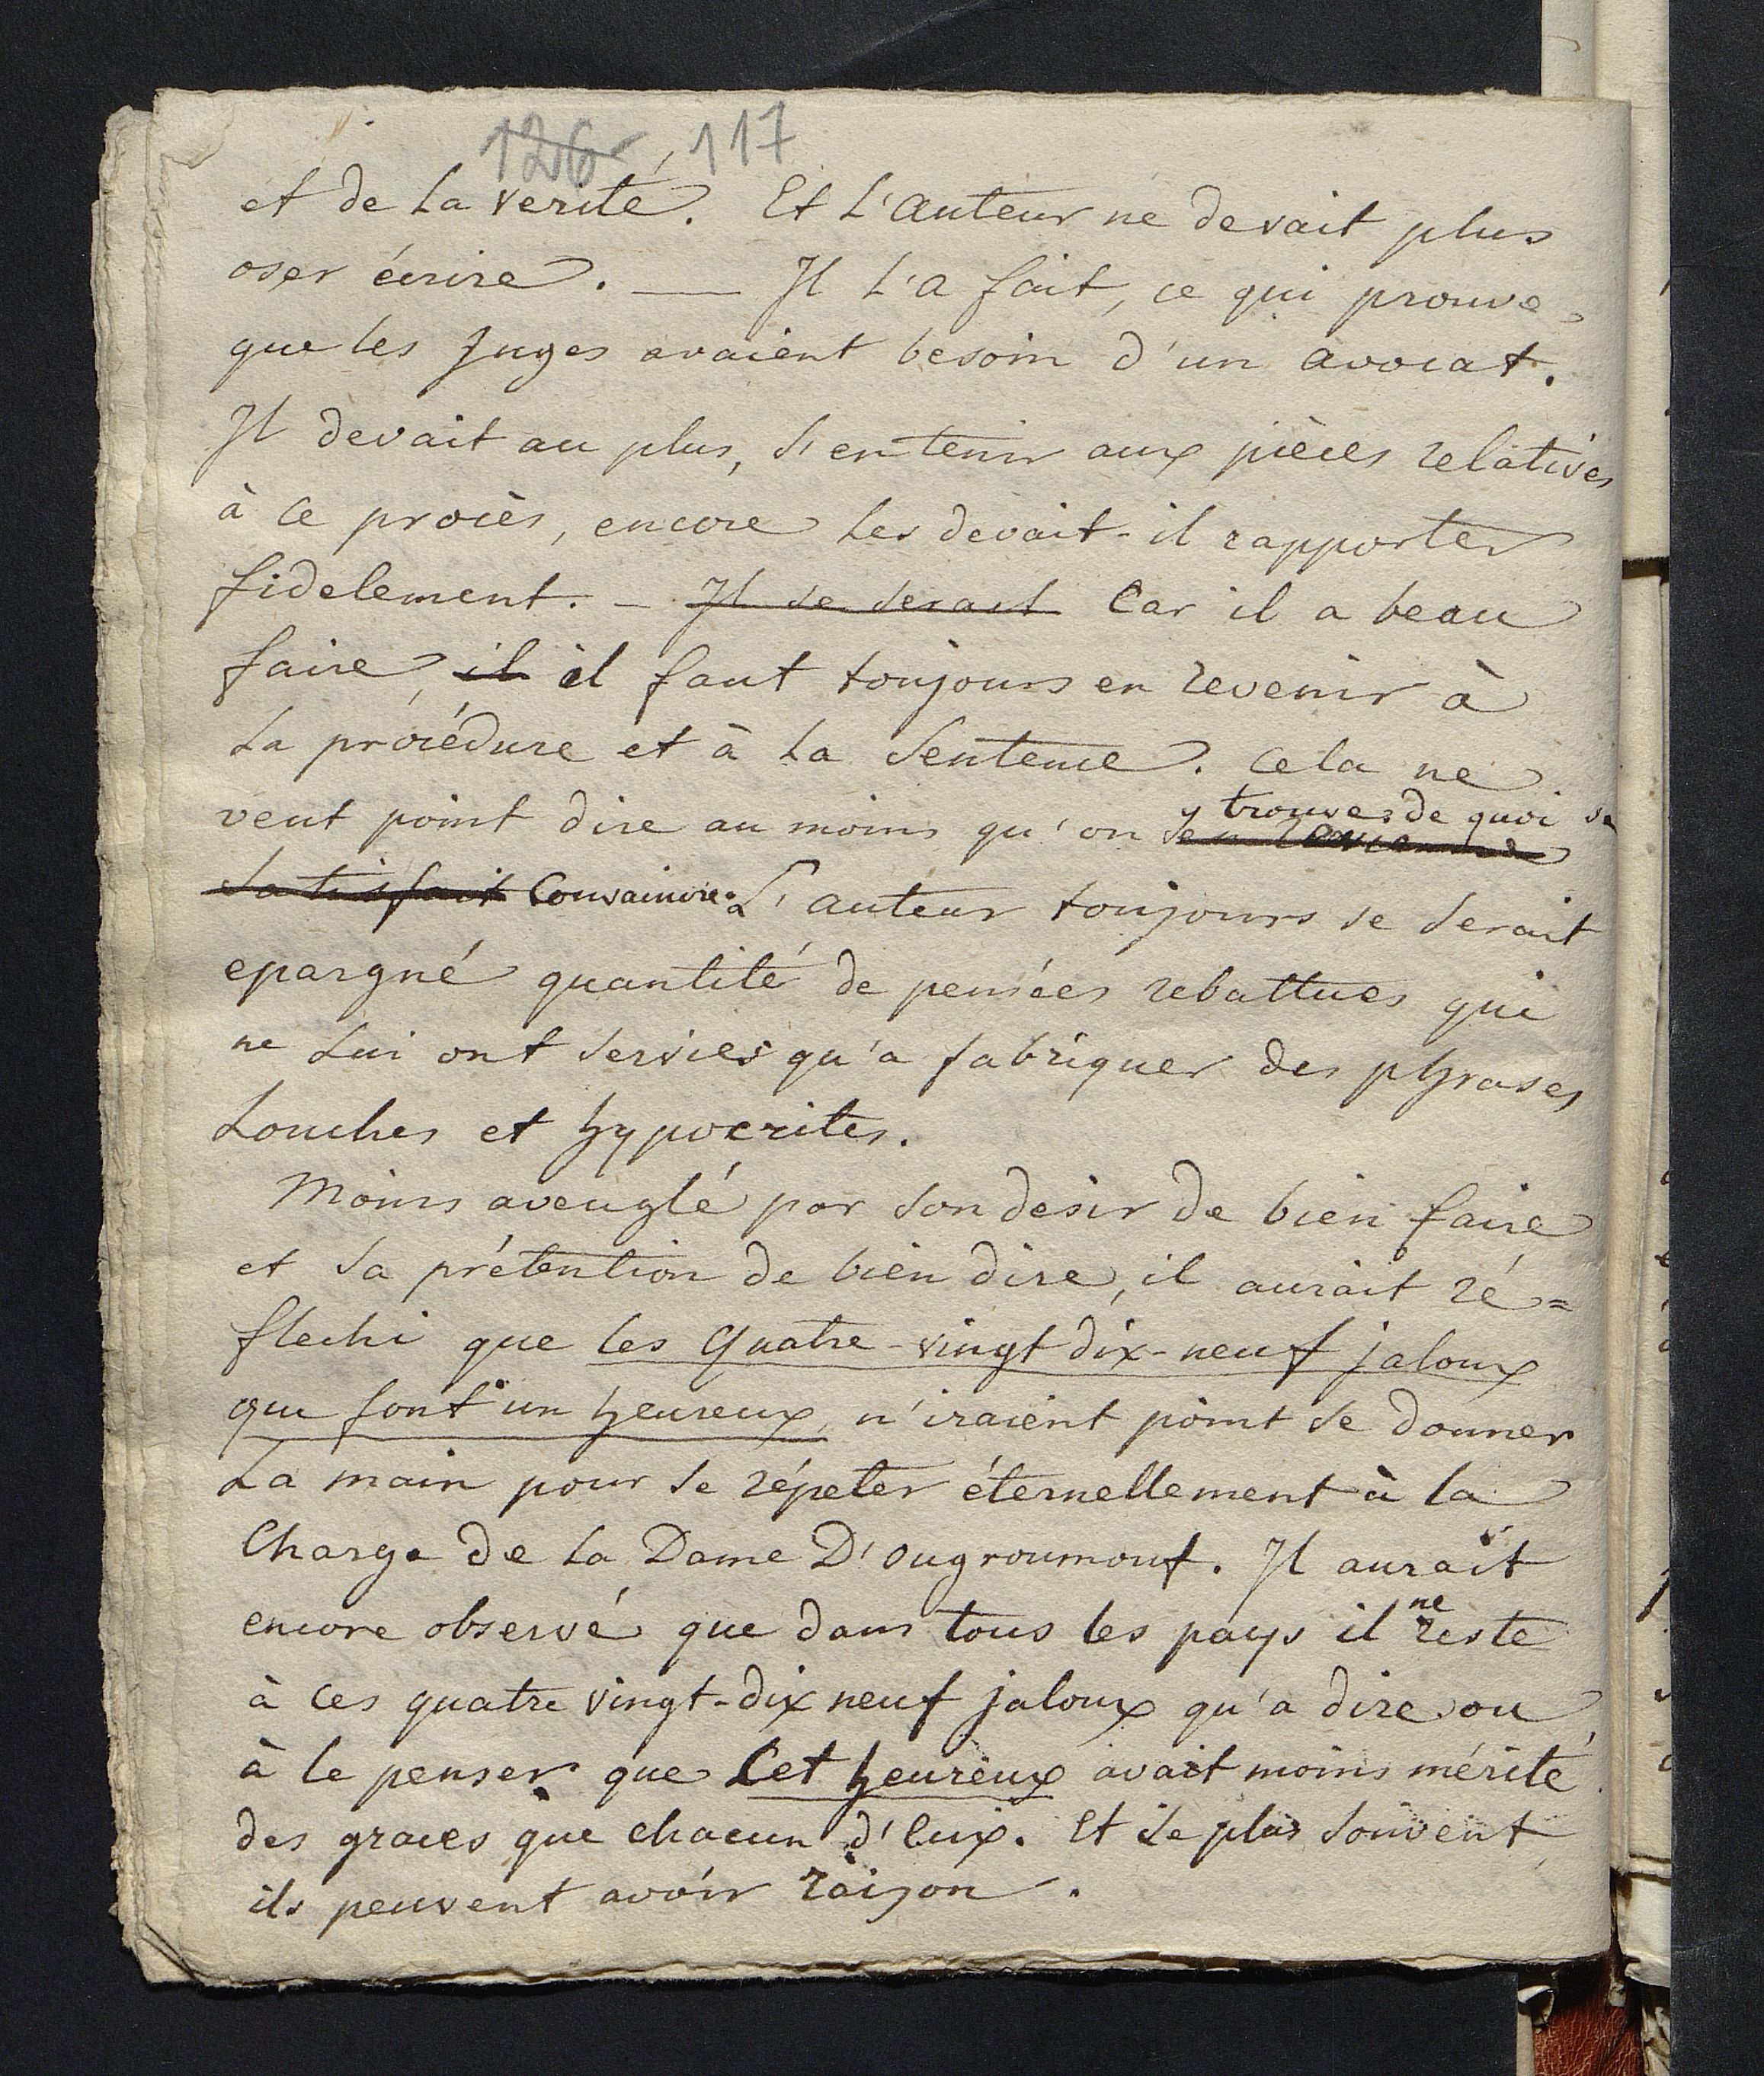 126 117
et de la verité. Et l'auteur ne devait plus
oser écrire. — Il l'a fait, ce qui prouve
que les Juges avaient besoin d'un avocat.
Il devait au plus, s'en tenir aux pièces relatives
à ce procès, encore les devait-il rapporter
fidelement. — Il se serait Car il a beau
faire, il il faut toujours en revenir à
la procédure et à la sentence. Cela ne
veut point dire au moins qu'on y trouve de quoi se
satisfait Convaincre. L'auteur toujours se serait
epargné quantité de pensées rebattues qui
ne lui ont servies qu'a fabriquer des phrases
louches et hypocrites.
Moins aveuglé par son desir de bien faire
et sa prétention de bien dire, il aurait ré=
flechi que les Quatre-vingt dix-neuf jaloux
que font un heureux, n'iraient point se donner
la main pour se répeter éternellement à la
Charge de la Dame D'ougroumouf. Il aurait
encore observé que dans tous les pays il ne reste
à ces quatre vingt-dix neuf jaloux qu'a dire ou
à le penser que Cet heureux avait moins mérité
des graces que chacun d'eux. Et le plus souvent
ils peuvent avoir raison.